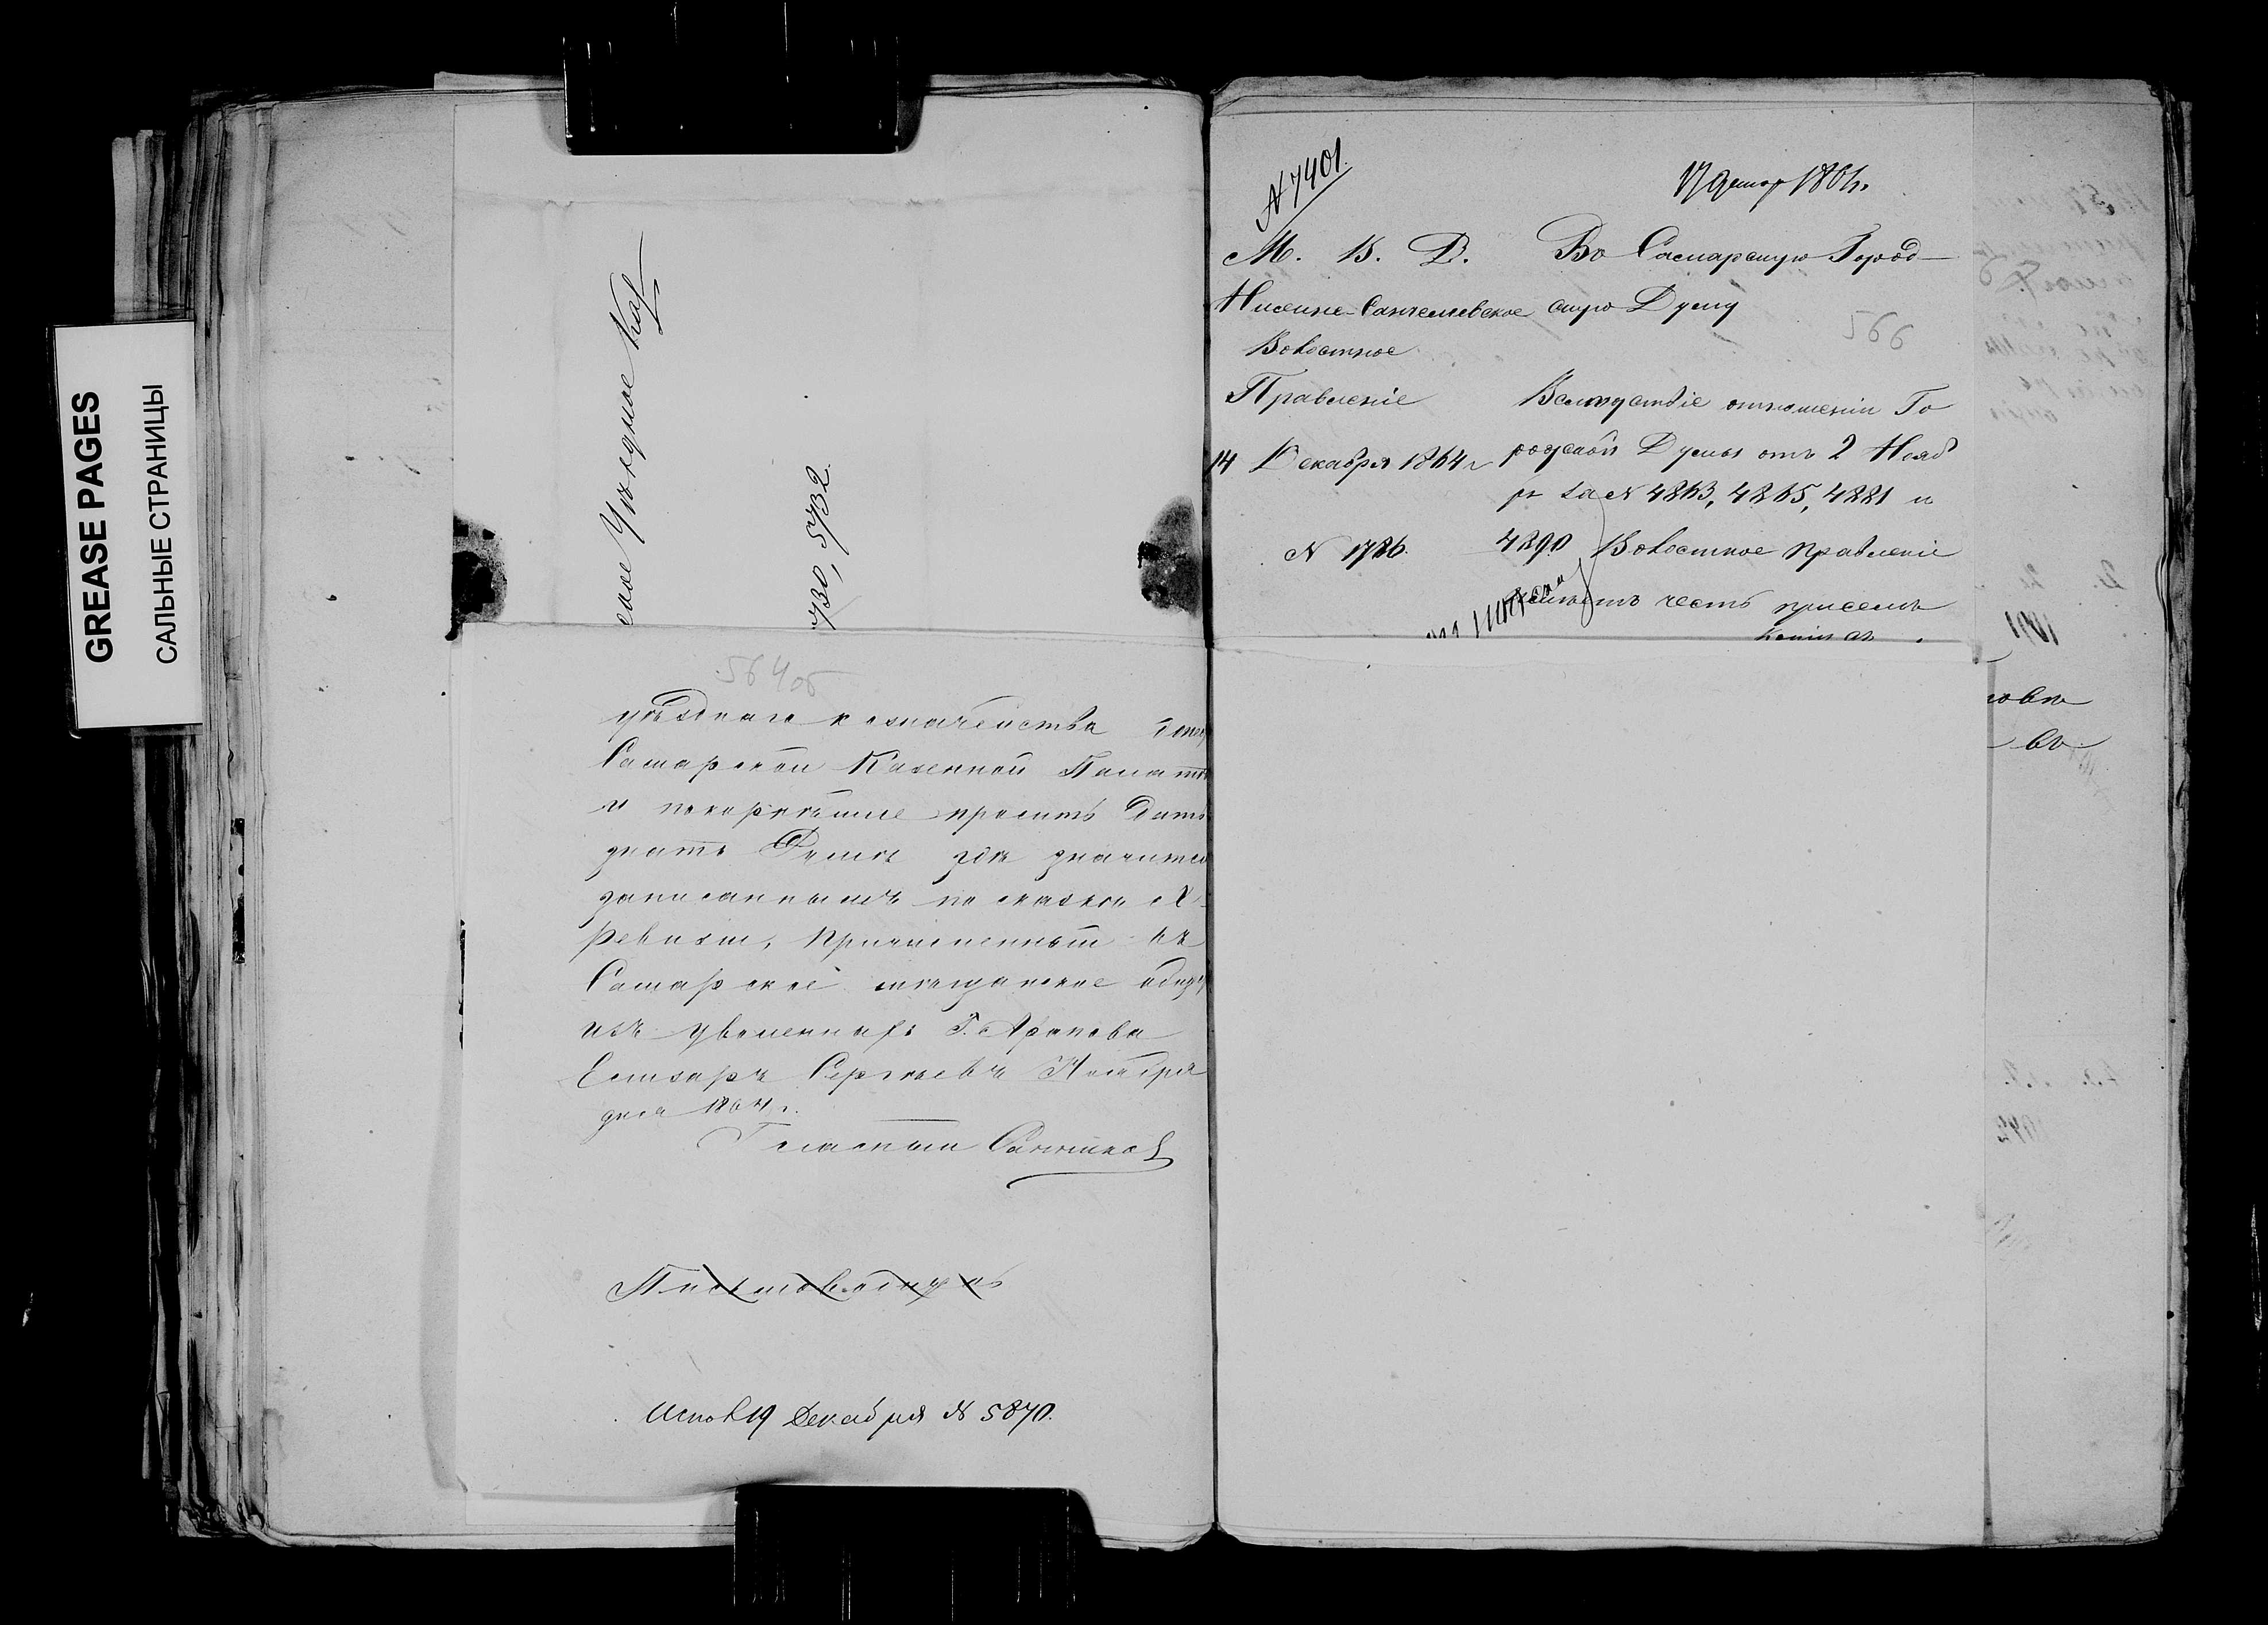 GREASE PAGES
САЛЬНЫЕ СТРАНИЦЫ
ское Уѣздное Каз
730, 5732.
564об
уѣзднаго казначейства
Самарской Казенной Палаты
и покорнѣйше проситъ дать
знать Думѣ гдѣ значится
записаннымъ по сказкѣ X
ревизіи, причисленный къ
Самарское мѣщанское общ
изъ уволенныхъ Г. Арапова
Елизаръ Сергѣевъ Ноября
дня 1864 г.
Гласный
Испол 19 Декабря № 5870.
№ 7401.
17 декаб 1864.
М. В. Д.
Нижне-Санчелеевское
Волостное
Правленіе
14 Декабря 1864 г
№ 1786.
Во Самарскую Город-
скую Думу
566
Вслѣдствіе отношеніи Го
родской Думы отъ 2 Нояб
ря за № 4863, 4865, 4881 и
4890 Волостное Правленіе
имѣетъ честь